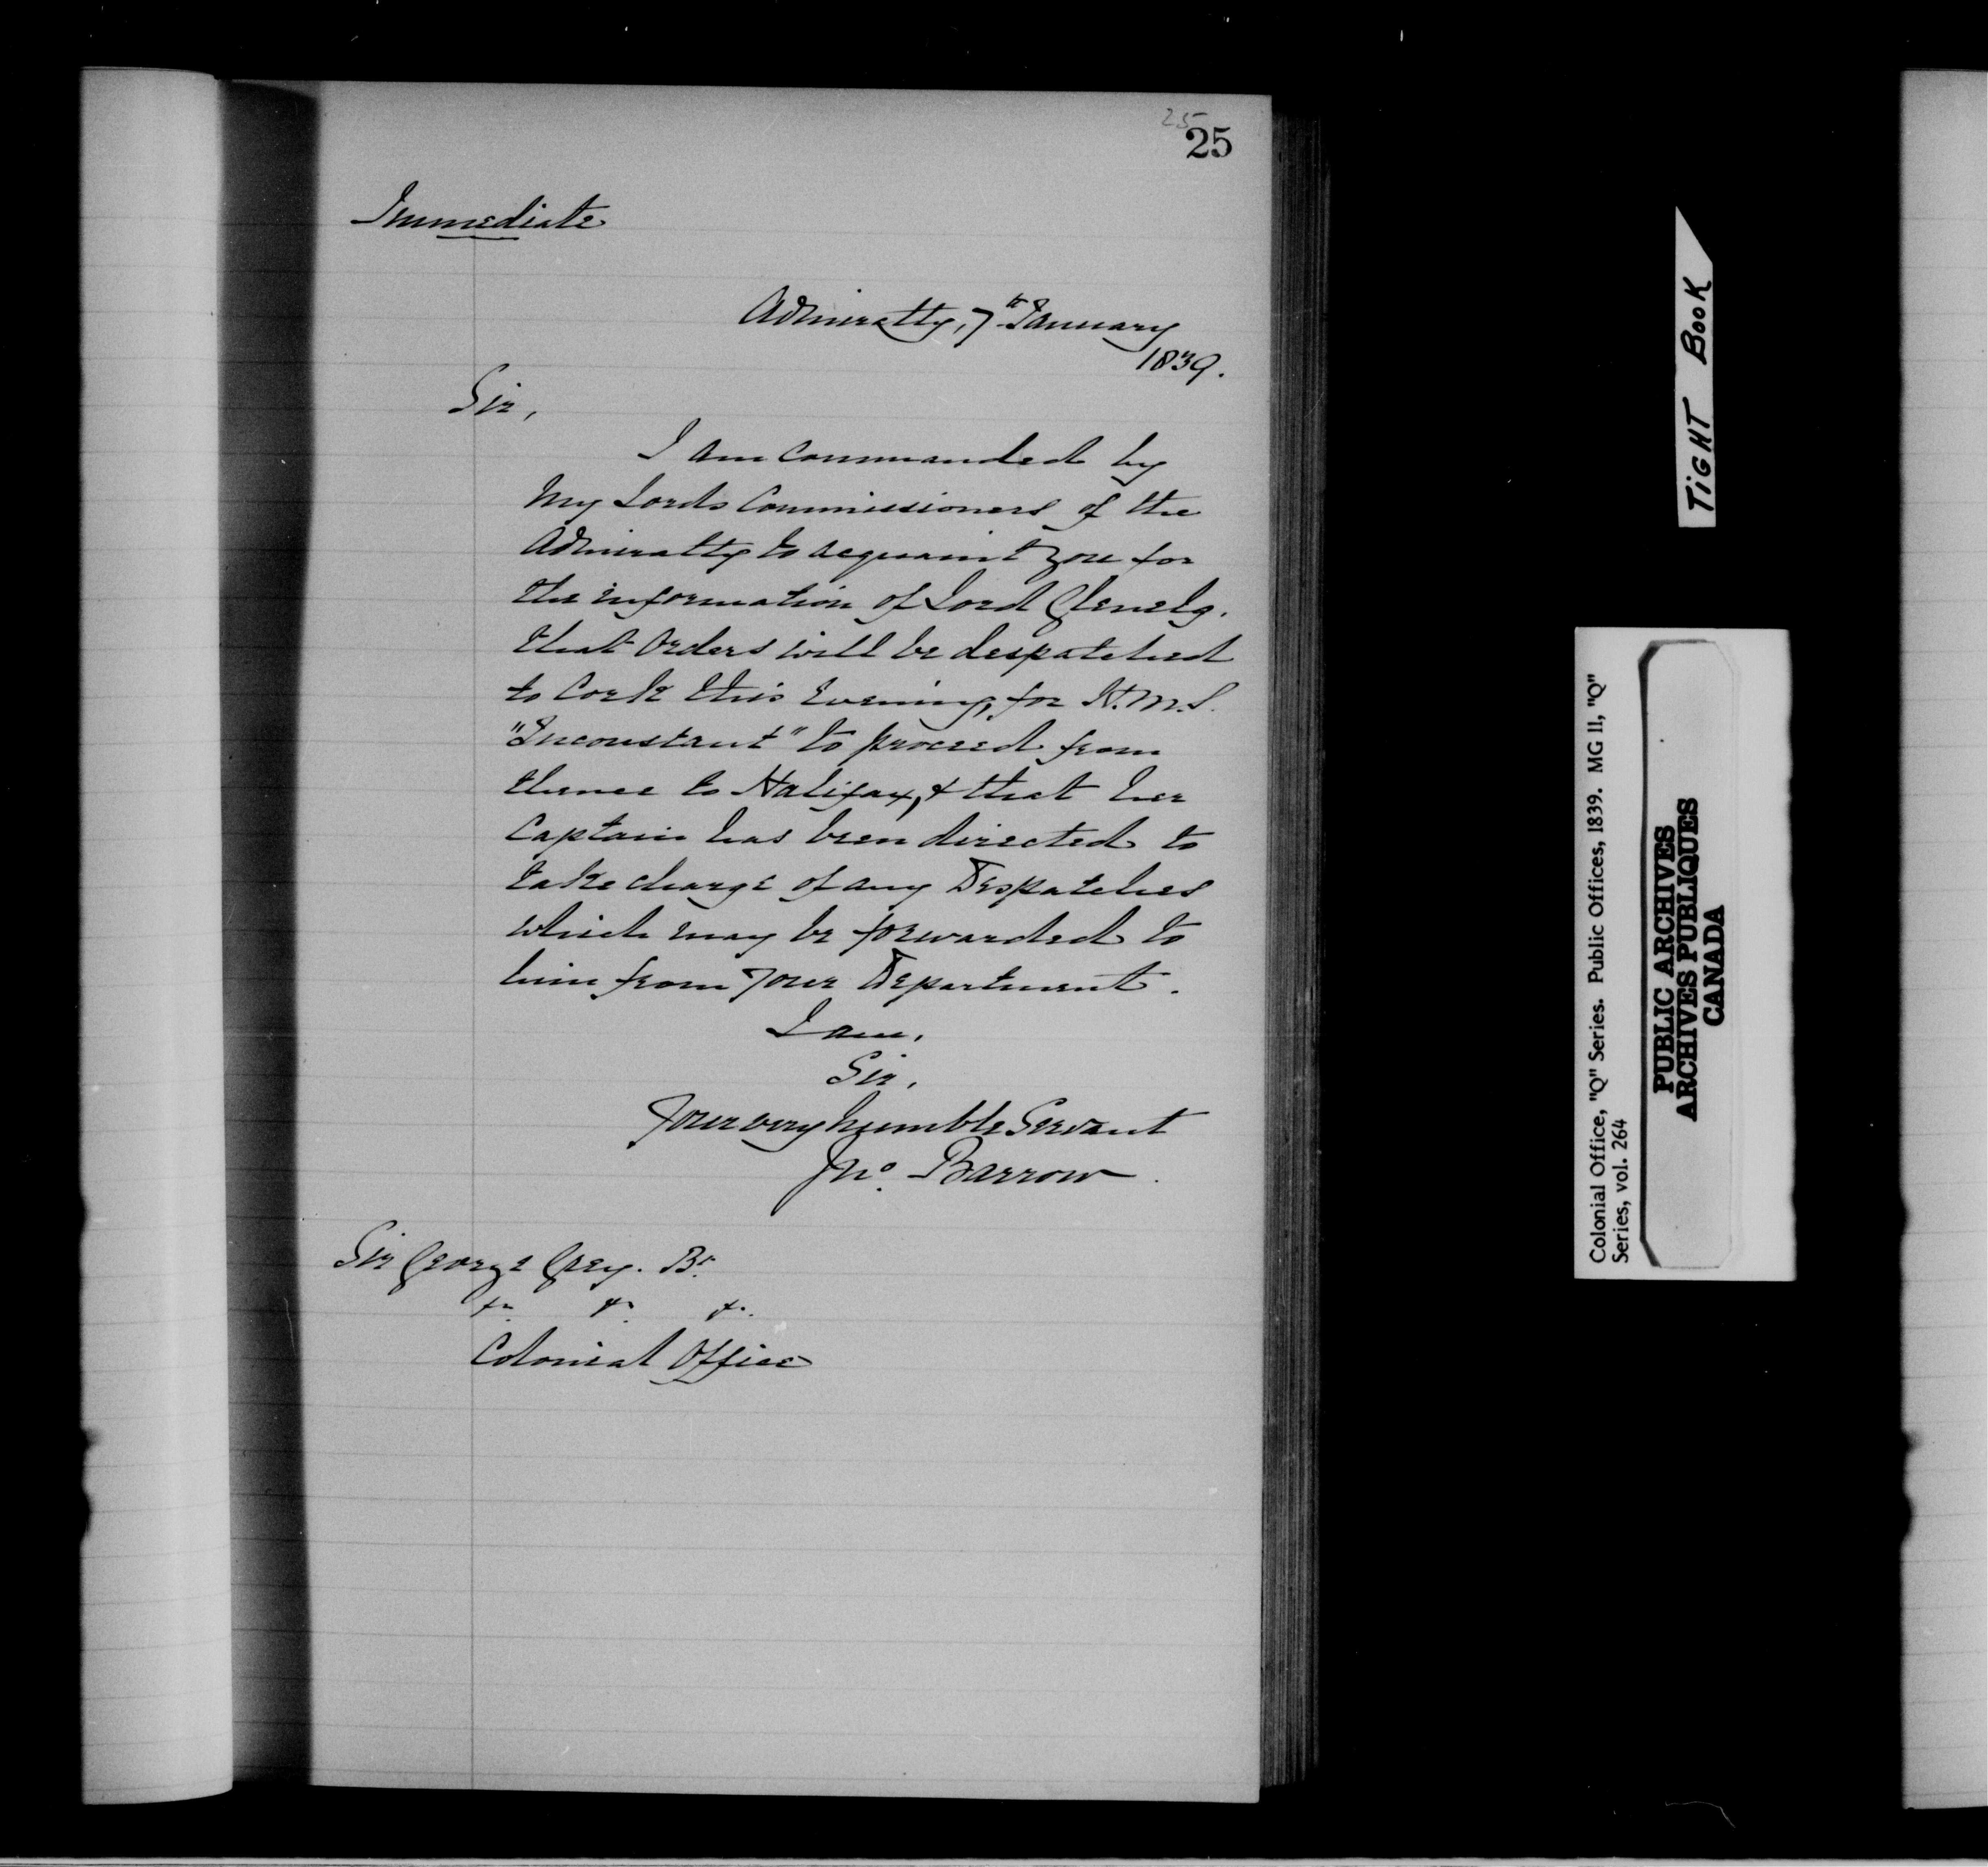 25
25
Immediate
Admiralty, 7th January
1839.
Sir,
I am Commanded by
My Lords Commissioners of the
Admiralty to acquaint you for
the information of Lord Glenelg.
that Orders will be despatched
to Cork this Evening, for H.M.S.
"Inconstant" to proceed from
thence to Halifax, & that her
Captain has been directed to
take charge of any Despatches
which may be forwarded to
him from your Department.
I am,
Sir,
Your very humble Servant
Jno. Barrow.
Sir George Grey. Bt.
&c. &c. &c.
Colonial Office
TIGHT BOOK
Colonial Office, "Q" Series. Public Offices, 1839. MG 11, "Q"
Series, vol. 264
PUBLIC ARCHIVES
ARCHIVES PUBLIQUES
CANADA